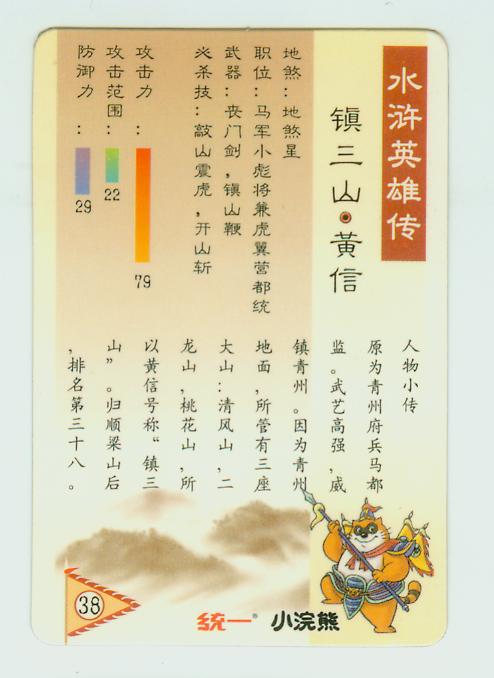 水浒英雄传
镇三山·黄信
地煞：地煞星
职位：马军小彪将兼虎翼营都统
武器：丧门剑，镇山鞭
必杀技：敲山震虎，开山斩
攻击力：
79
攻击范围：
22
防御力：
29
人物小传
原为青州府兵马都
监。武艺高强，威
镇青州。因为青州
地面，所管有三座
大山：清风山，二
龙山，桃花山，所
以黄信号称“镇三
山”。归顺梁山后
，排名第三十八。
38
统一® 小浣熊